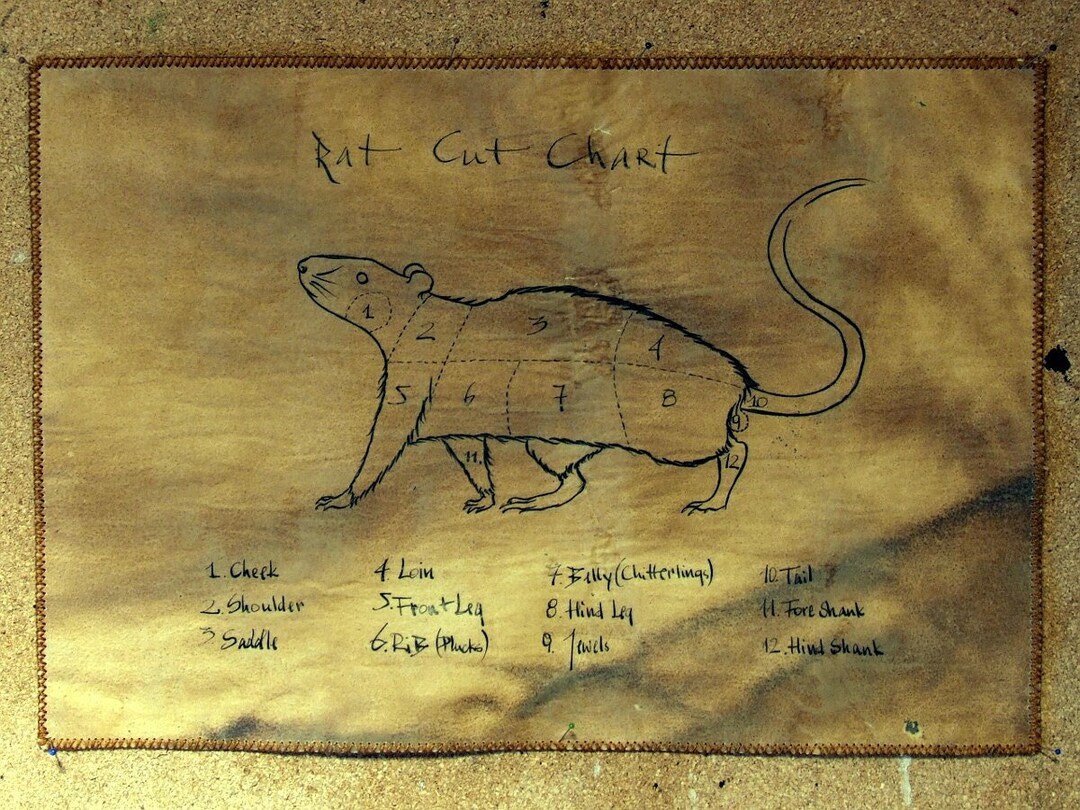 Rat Cut Chart
1
2
3
4
5
6
7
8
9
10
11.
12
1. Cheek
2. Shoulder
3 Saddle
4 Loin
5. Front Leg
6. RiB (Plucks)
7. Belly (Chitterlings)
8. Hind Leg
9. Jewels
10. Tail
11. Fore Shank
12. Hind Shank